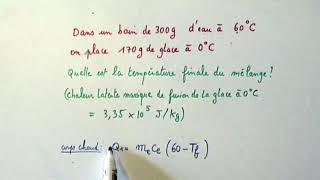 Dans un bain de 300g d'eau à 60°C
on place 170g de glace à 0°C
Quelle est la température finale du mélange?
(Chaleur latente massique de fusion de la glace à 0°C
= 3,35 × 10⁵ J/kg)
corps chaud: Q = m Ce (60 - Tf)